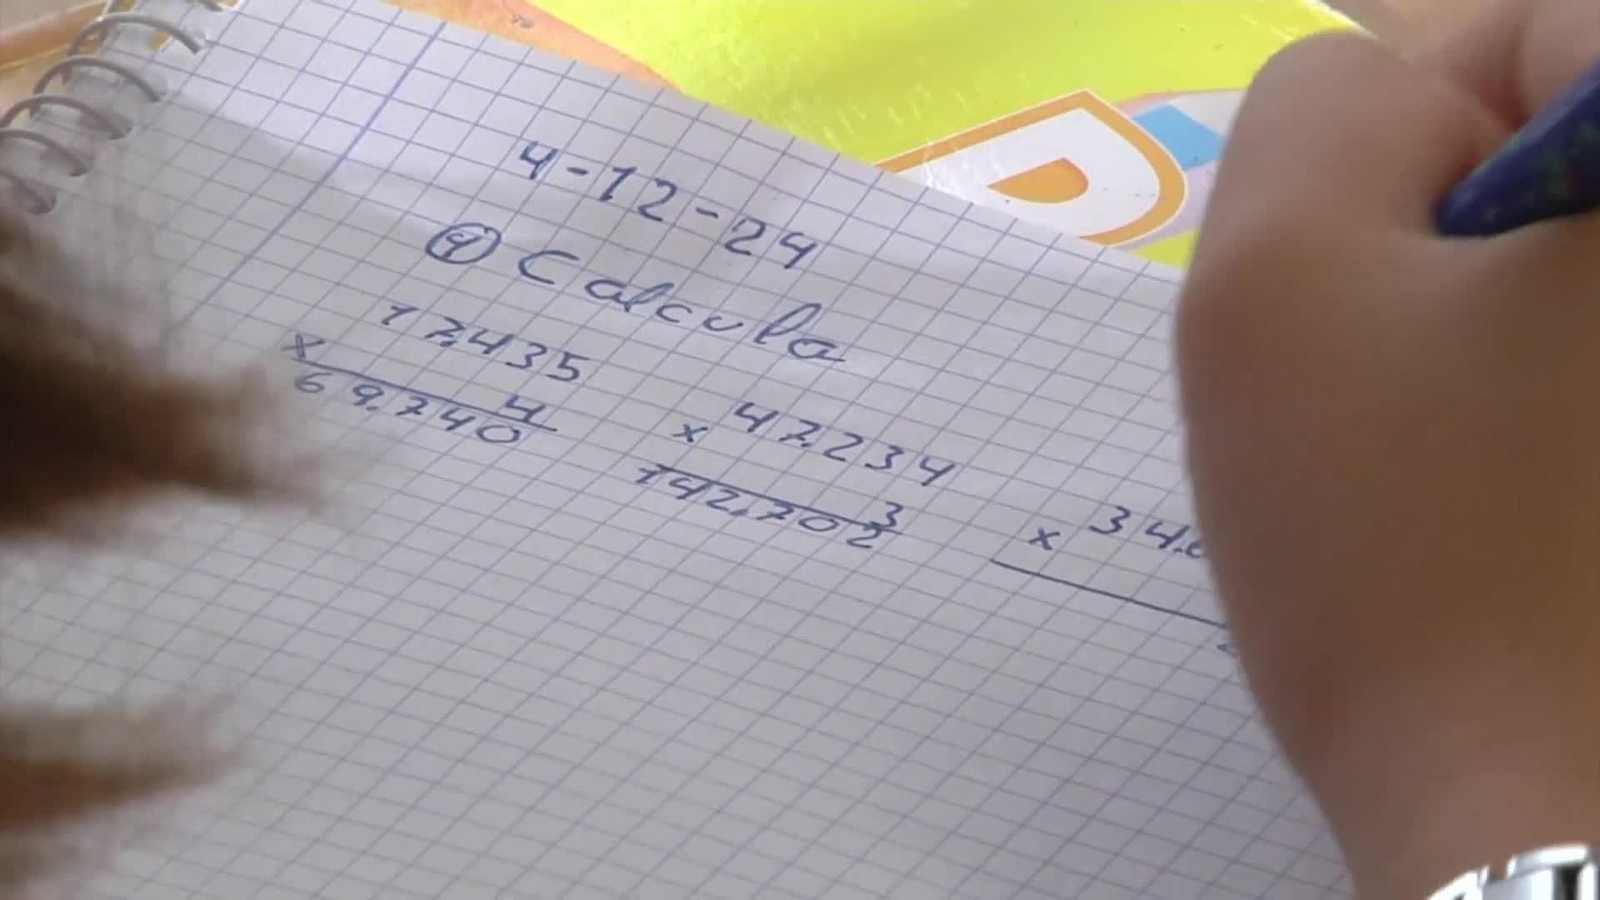 4-12-24
④ Calcula
17.435
x 4
69.740
47.234
x 3
142.702
x 34.